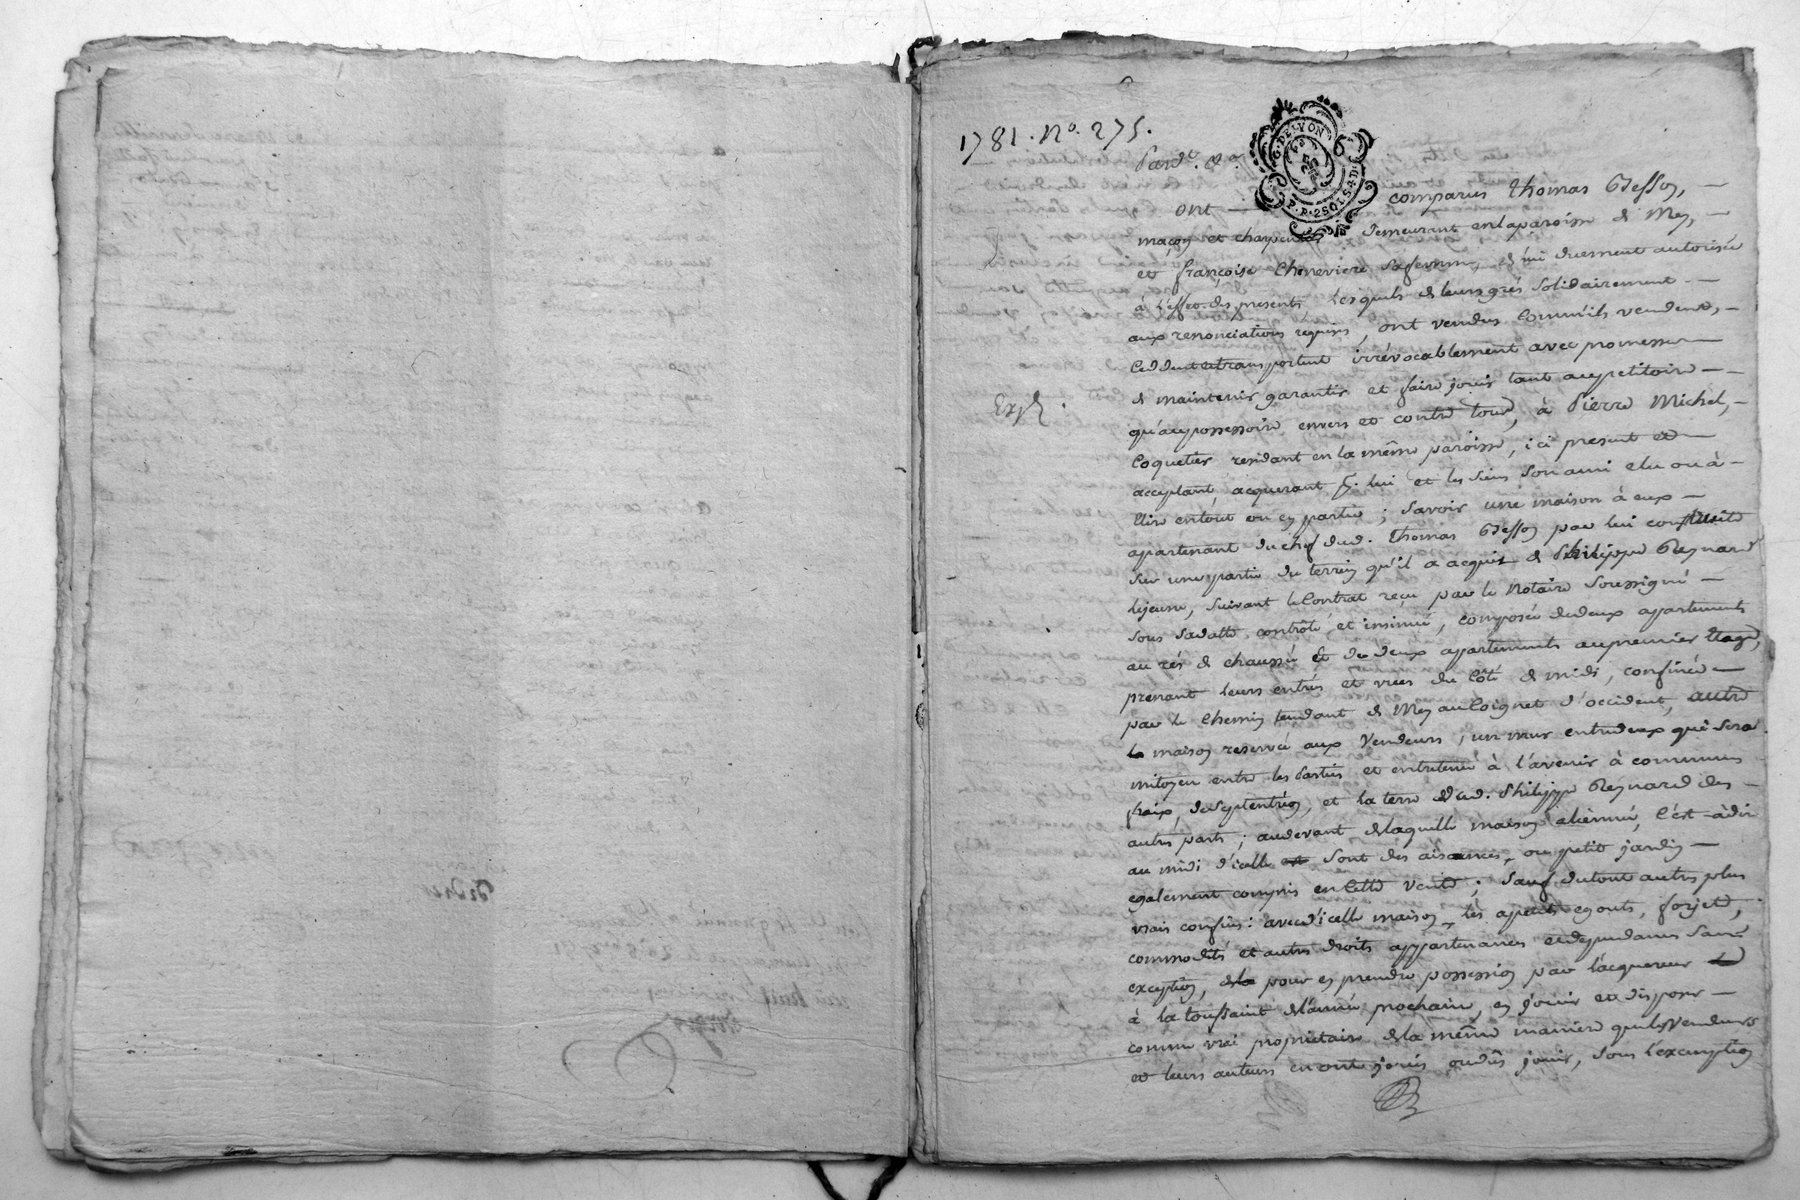 1781. No. 275.
Pard.t &a.
G. DE LYON
P. P. 2 SOLS. 4 D.
ont — comparus Thomas Besson, —
maçon et charpentier demeurant en la paroisse de Mey, —
et françoise Cheneviere Safemme, de lui duement autorisée
à L'effet des presents Lesquels de leurs grés Solidairement —
aux renonciations requises, ont vendus Comme ils vendent, —
Cedent et transportent irrévocablement avec promesse —
de maintenir garantir et faire jouir tant au petitoire —
qu'au possessoire envers et contre tous, à Pierre Michel, —
Coquetier residant en la même paroisse, ici present et —
acceptant, acquerant p. lui et les Siens Son ami elu ou à —
Elire en tout ou en partie ; Savoir une maison à eux —
apartenant du chef dud. Thomas Besson par lui construite
Sur une partie du terrein qu'il a acquis de Philippe Reynard
lejeune, Suivant le Contrat reçu par le Notaire Soussigné —
Sous Sa datte, contrôlé et insinué, composée de deux appartements
au rés de chaussée Et de deux appartements au premier Etage,
prenant leurs entrées et vues du Côté de midi, confinée —
par le Chemin tendant de Mey au Coignet d'occident, autre
maison reservée aux Vendeurs, un mur entredeux qui Sera
mitoyen entre les Parties et entretenu à l'avenir à communs
fraix, de Septentrion, et la terre dud. Philippe Reynard des —
autres parts ; audevant de laquelle maison alienée, C'est-à-dire
au midi d'icelle Sont des aisances, ou petit jardin —
egalement compris en Cette Vente ; Sauf du tout autres plus
vrais confins : avec d'icelle maison, les egouts, forjets,
commodités et autres droits appartenances et dependances Sans
exception, pour en prendre possession par l'acquereur
à la toussaint de l'année prochaine, en jouir et disposer —
comme vrai proprietaire de la même maniere que les Vendeurs
et leurs auteurs en ont jouis ou dûs jouir, Sous l'exception
Exp.